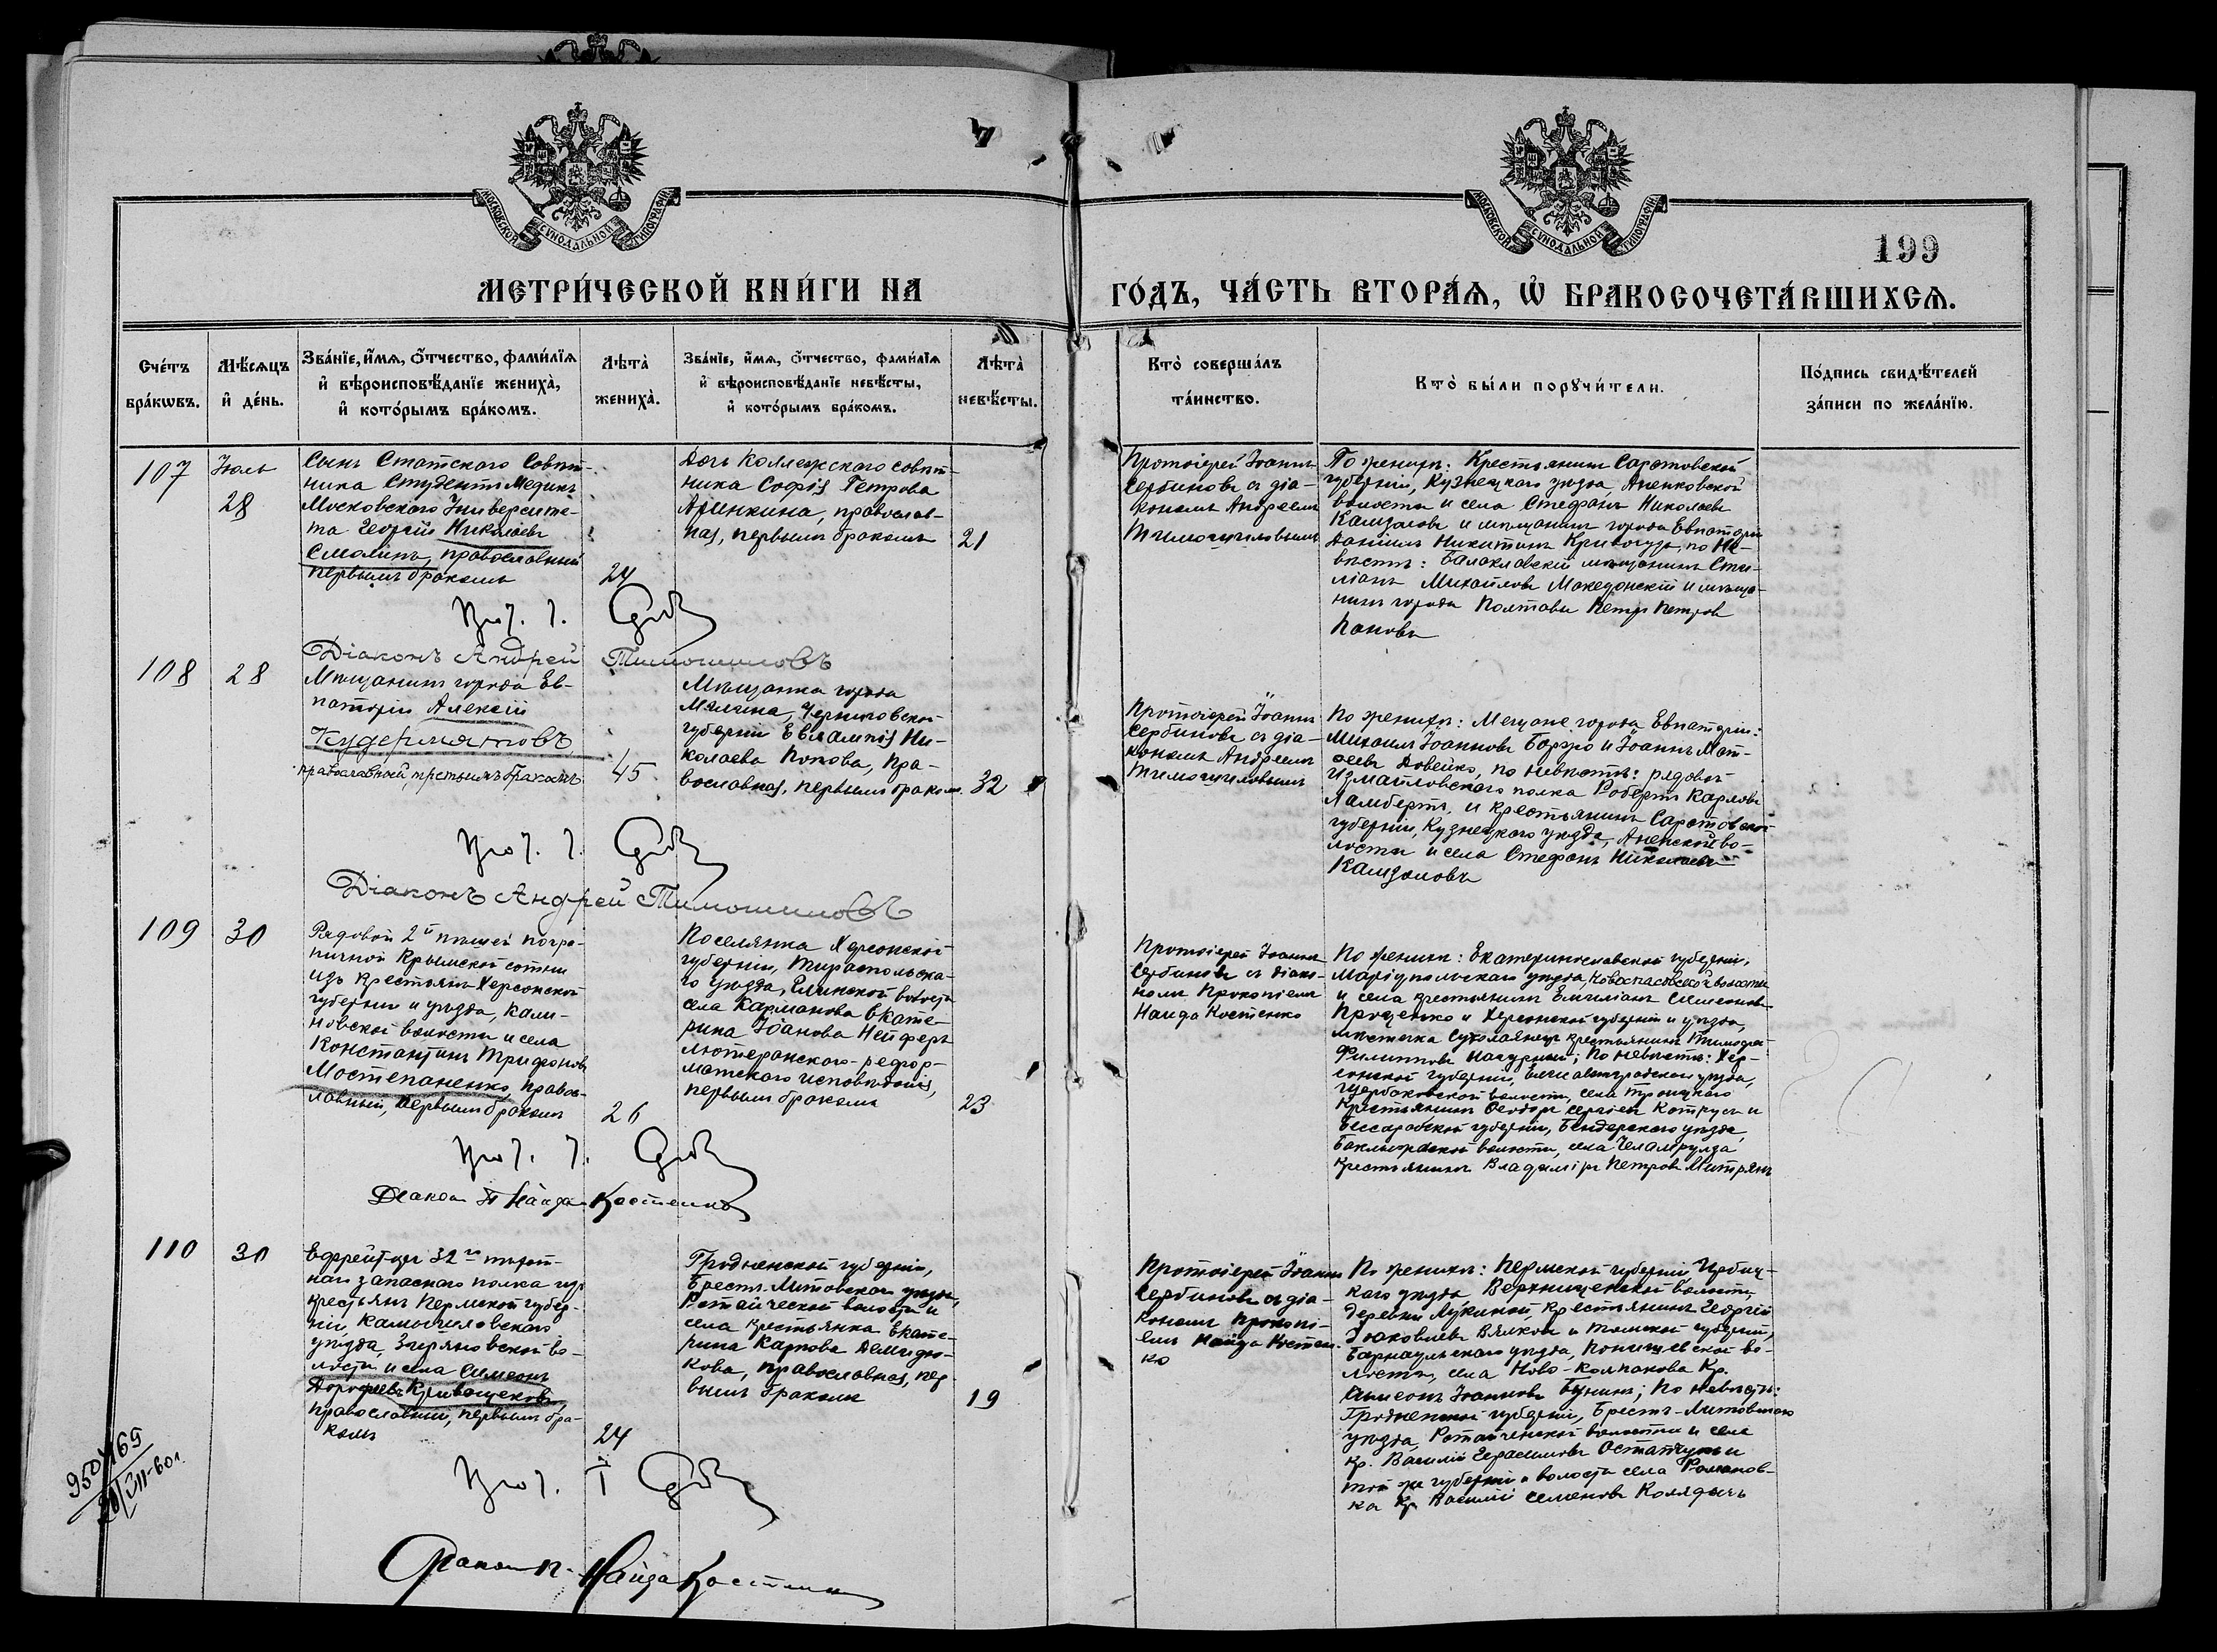 МОСКОВСКОЙ СѴНОДАЛЬНОЙ ТИПОГРАФІИ
МОСКОВСКОЙ СѴНОДАЛЬНОЙ ТИПОГРАФІИ
199
МЕТРИ́ЧЕСКОЙ КНИ́ГИ НА
ГО́ДЪ, ЧА́СТЬ ВТОРА́Ѧ, Ѡ҆ БРАКОСОЧЕТА́ВШИХСѦ.
Сче́тъ
бра́кѡвъ.
Мѣ́сѧцъ
и҆ де́нь.
Зва́нїе, и҆́мѧ, ѻ҆́тчество, фами́лїѧ
и҆ вѣроисповѣ́данїе жениха̀,
и҆ кото́рымъ бра́комъ.
Лѣта̀
жениха̀.
Зва́нїе, и҆́мѧ, ѻ҆́тчество, фами́лїѧ
и҆ вѣроисповѣ́данїе невѣ́сты,
и҆ кото́рымъ бра́комъ.
Лѣта̀
невѣ́сты.
Кто̀ соверша́лъ
та́инство.
Кто̀ бы́ли порꙋчи́тели.
По́дпись свидѣ́телей
за́писи по жела́нїю.
107
Іюль
28
Сынъ Статскаго Совѣт-
ника Студентъ Медикъ
Московскаго Университе-
та Георгій Николаевъ
Смолинъ, православный
первымъ бракомъ
24
Дочь Коллежскаго совѣт-
ника Софія Петрова
православ-
ная, первымъ бракомъ
21
Протоіерей Іоаннъ
Сербиновъ съ діа-
кономъ Андреемъ
Тимошиловымъ
По женихѣ: Крестьянинъ Саратовской
губерніи, Кузнецкаго уѣзда, Аненковской
волости и села Стефанъ Николаевъ
Камзаловъ и мѣщанинъ города Евпаторіи
Даніилъ Никитинъ по Не-
вѣстѣ: Балаклавскій мѣщанинъ Сти-
ліанъ Михайловъ Македонскій и мѣща-
нинъ города Полтавы Петръ Петровъ
Пановъ
Прот. І.
Діаконъ Андрей Тимошиловъ
108
28
Мѣщанинъ города Ев-
паторіи Алексій
Кудерматовъ
православный, третьимъ бракомъ
45
Мѣщанка города
Мглина, Черниговской
губерніи Евлампія Ни-
колаева Попова, пра-
вославная, первымъ браком.
32
Протоіерей Іоаннъ
Сербиновъ съ діа-
кономъ Андреемъ
Тимошиловымъ
По женихѣ: Мещане города Евпаторіи:
Михаилъ Іоанновъ и Іоаннъ Мат-
ѳеевъ Довейко, по невѣстѣ: рядовой
Измайловскаго полка Робертъ Карловъ
Ламбертъ, и крестьянинъ Саратовской
губерніи, Кузнецкаго уѣзда, Аненской во-
лости и села Стефанъ Николаевъ
Камзаловъ
Прот. І.
Діаконъ Андрей Тимошиловъ
109
30
Рядовой 2й пѣшей погра-
ничной Крымской сотни
изъ крестьянъ Херсонской
губерніи и уѣзда, Кали-
новской волости и села
Константинъ Трифоновъ
Мостепаненко, правос-
лавный, первымъ бракомъ
26
Поселянка Херсонской
губерніи, Тираспольска-
го уѣзда, волости
села Карманова Екате-
рина Іоанова Нейферъ
лютеранскаго-рефор-
матскаго исповѣданія,
первымъ бракомъ
23
Протоіерей Іоаннъ
Сербиновъ съ діако-
номъ Прокопіемъ
Наида Костенко
По женихѣ: Екатеринославской губерніи,
Маріупольскаго уѣзда, Новоспасовской волости
и села крестьянинъ Емиліанъ Симеоновъ
Проценко и Херсонской губерніи и уѣзда,
мѣстечка крестьянинъ Тимоѳей
Филипповъ по невѣстѣ: Хер-
сонской губерніи, Елисаветградскаго уѣзда,
Щербаковской волости, села Троицкаго
крестьянинъ Ѳеодоръ Сергіевъ и
Бессарабской губерніи, Бендерскаго уѣзда,
волости, села
крестьянинъ Владиміръ Петровъ
Прот. І.
Діакон П Найда-Костенко
110
30
Ефрейторъ 32го пѣхот-
наго запаснаго полка изъ
крестьянъ Пермской губер-
ніи, Камышловскаго
уѣзда, во-
лости и села Симеонъ
Дороѳеевъ Кривощековъ,
православный, первымъ бра-
комъ
24
Гродненской губерніи,
Брестъ-Литовскаго уѣзда,
волости и
села крестьянка Екате-
рина Карпова Демидю-
кова, православная, пер-
вымъ бракомъ
19
Протоіерей Іоаннъ
Сербиновъ съ діа-
кономъ Прокопі-
емъ Найда Костен-
ко
По женихѣ: Пермской губерніи Ирбит-
каго уѣзда, волости,
деревни Лукиной, крестьянинъ Георгій
Іаковлевъ Вялковъ и Томской губерніи,
Барнаульскаго уѣзда, во-
лости, села Ново-Колпакова Кр.
Симеонъ Іоанновъ Бунинъ; По невѣстѣ:
Гродненской губерніи, Брестъ-Литовскаго
уѣзда, волости и села
Кр. Василій Герасимовъ и
той же губерніи и волости села Романов-
ка Кр. Василій Семеновъ Колядичъ
Прот. І
Діакон П. Найда Костенко